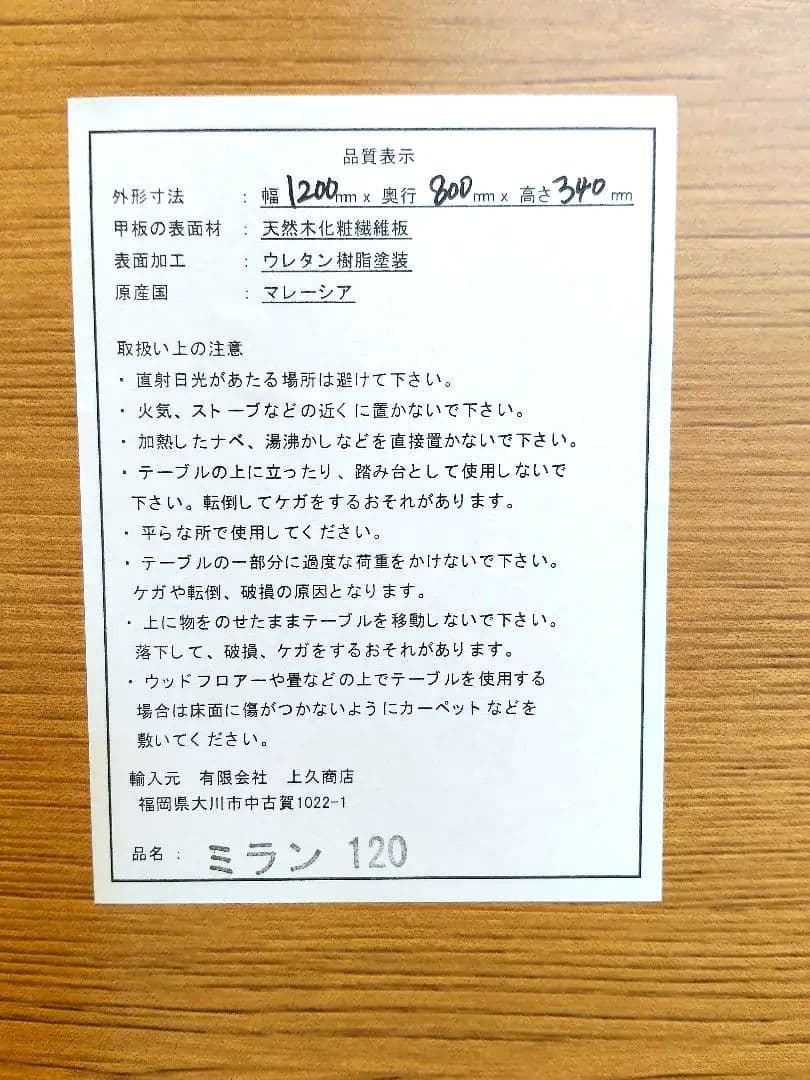 品質表示
外形寸法 : 幅 1200mm x 奥行 800mm x 高さ 340mm
甲板の表面材 : 天然木化粧繊維板
表面加工 : ウレタン樹脂塗装
原産国 : マレーシア
取扱い上の注意
・直射日光があたる場所は避けて下さい。
・火気、ストーブなどの近くに置かないで下さい。
・加熱したナベ、湯沸かしなどを直接置かないで下さい。
・テーブルの上に立ったり、踏み台として使用しないで
下さい。転倒してケガをするおそれがあります。
・平らな所で使用してください。
・テーブルの一部分に過度な荷重をかけないで下さい。
ケガや転倒、破損の原因となります。
・上に物をのせたままテーブルを移動しないで下さい。
落下して、破損、ケガをするおそれがあります。
・ウッドフロアーや畳などの上でテーブルを使用する
場合は床面に傷がつかないようにカーペットなどを
敷いてください。
輸入元 有限会社 上久商店
福岡県大川市中古賀1022-1
品名 : ミラン 120